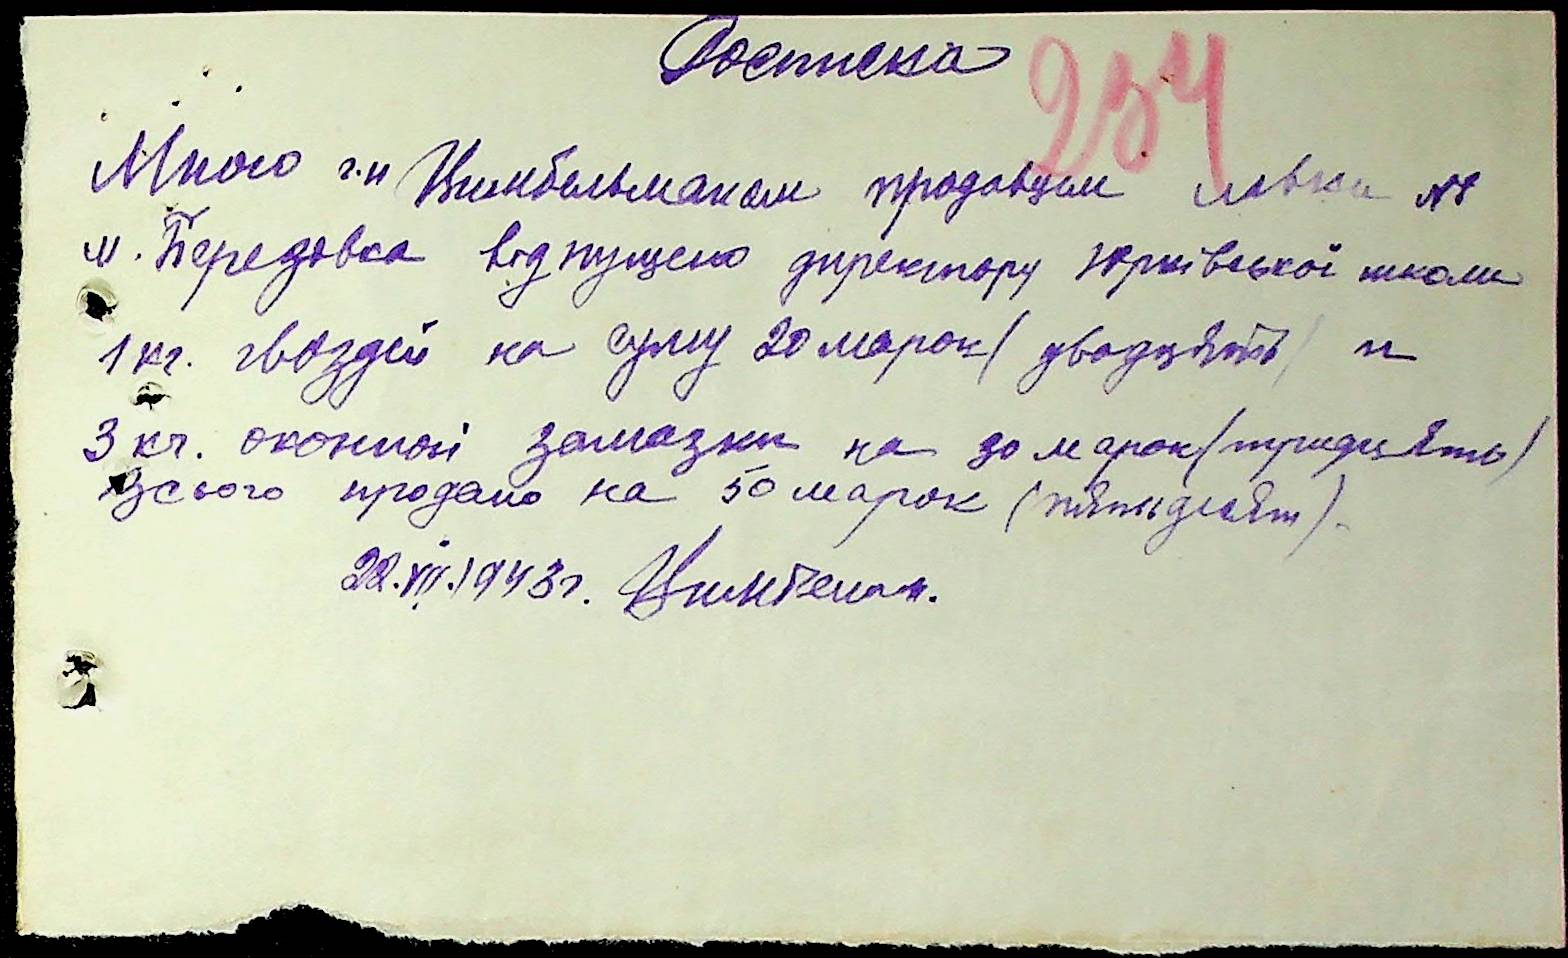 Розписка
254
Мною г-н Цимбельманом продавцом лавки №
м. Передовка відпущено директору Юрківської школи
1 кг. гвоздей на суму 20 марок (двадцять) и
3 кг. оконной замазки на 30 марок (тридцять)
Всього продано на 50 марок (пятьдесят).
22.VII.1943 г.